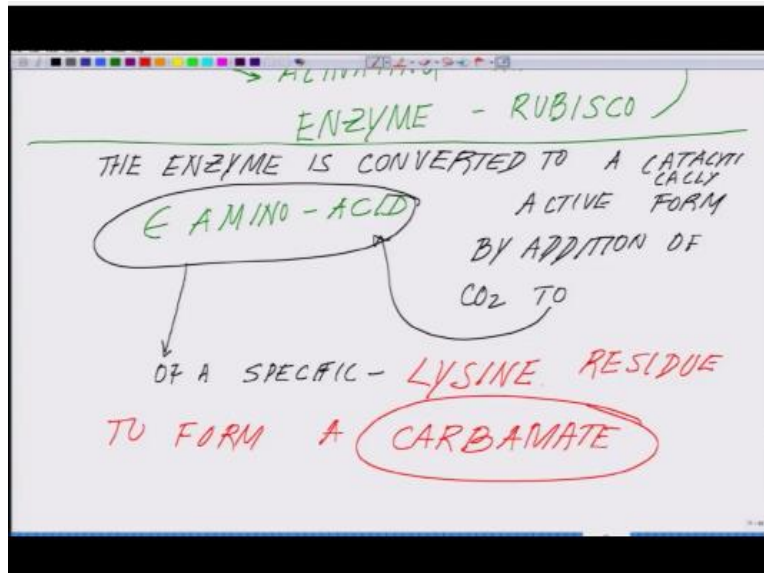 ENZYME - RUBISCO
THE ENZYME IS CONVERTED TO A CATALYTI
CALLY
ACTIVE FORM
BY ADDITION OF
CO2 TO
E AMINO-ACID
OF A SPECIFIC- LYSINE RESIDUE
TO FORM A CARBAMATE